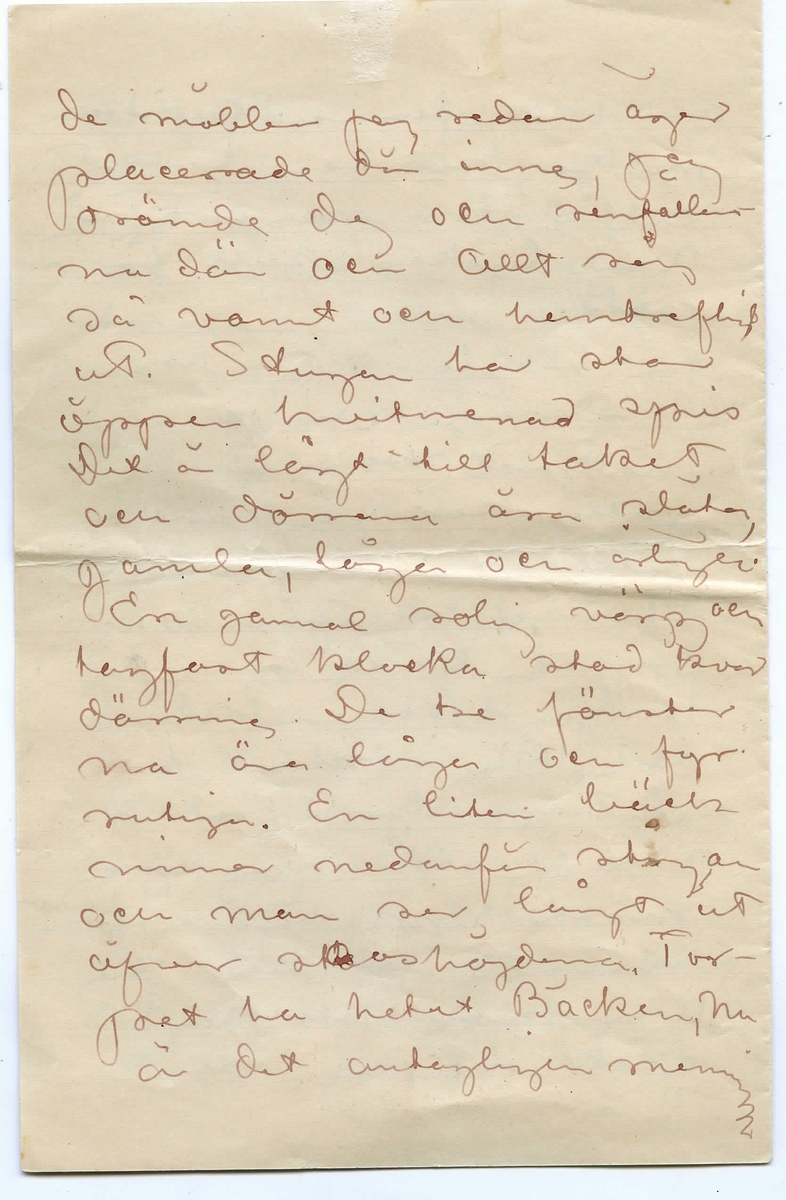 de möbler jag redan äger
placerade där inne, jag
drömde dig och renfällar-
na där och Allt såg
så varmt och hemtrefligt
ut. Stugan har stor
öppen hvitmenad spis
Det är lågt till taket
och dörrarna äro släta,
gamla, låga och
En gammal rolig vägg och
tagfast klocka stod kvar
därinne. De tre fönster
na äro låga och fyr-
rutiga. En liten bäck
rinner nedanför stugan
och man ser långt ut
öfver skogshöjderna. Tor-
pet har hetat Bäcken, nu
är det antagligen mening